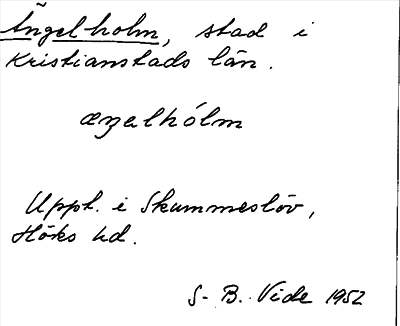 Ängelholm, stad i
Kristianstads län.
æŋalhólm
Upph. i Skummeslöv,
Höks hd.
S-B. Vide 1952